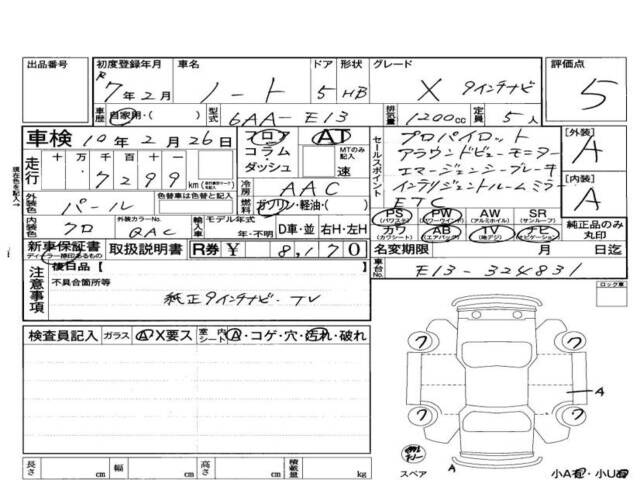 出品番号
初度登録年月
R7年2月
車名
ノート
ドア
5
形状
HB
グレード
X 9インチナビ
評価点
5
車歴
自家用・( )
型式
6AA-E13
排気量
1200cc
定員
5人
車検 10年2月26日
走行
十 万 千 百 十 一
7 2 9 9 km
フロア
コラム・
ダッシュ
AT
MTのみ記入
速
セールスポイント
プロパイロット
アラウンドビューモニター
エマージェンシーブレーキ
インテリジェントルームミラー
ETC
[外装]
A
[内装]
A
外装色
パール
色替車は色替と記入
冷房
AAC
燃料
ガソリン・軽油・( )
内装色
クロ
外装カラーNo.
QAC
輸入車
モデル年式
年・不明
D車・並
右H・左H
PS
(パワステ)
PW
(パワーウインド)
AW
(アルミホイル)
SR
(サンルーフ)
カワ
(カワシート)
AB
(エアバッグ)
TV
(地デジ)
ナビ
(ナビゲーション)
純正品のみ
丸印
新車保証書
ディーラー捺印あるもの
取扱説明書
R券
¥ 8,170
名変期限 月 日迄
車台No.
E13-324831
現在色を記入→
注意事項
後日品【
不具合箇所等
純正9インチナビ・TV
ロック車
検査員記入
ガラス
A・X要ス
室内
シート
A・コゲ・穴・汚れ・破れ
7
7
7
7
A
A
スペア
小A有・小U有
長さ cm
幅 cm
高さ cm
積載量 kg